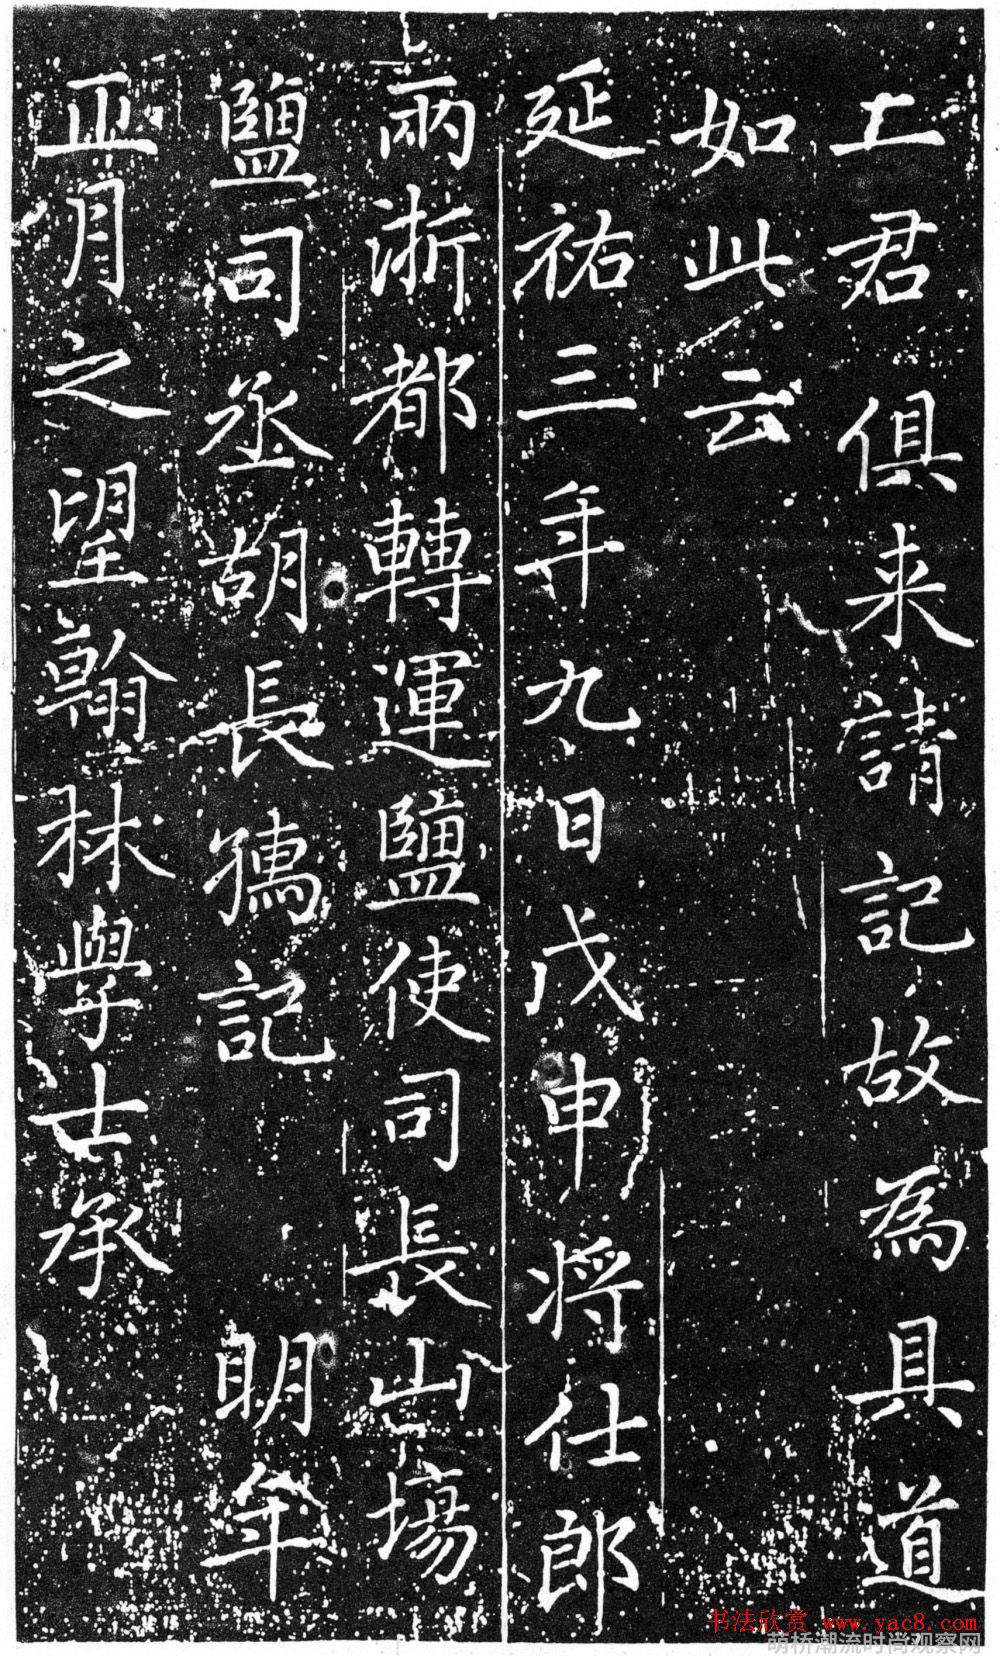 士君俱来請記故為具道
如此云
延祐三年九日戊申将仕郎
兩浙都轉運鹽使司長山場
鹽司丞胡長孺記　明年
正月之望翰林學士承
书法欣赏 www.yac8.com
萌桥潮流时尚观察网